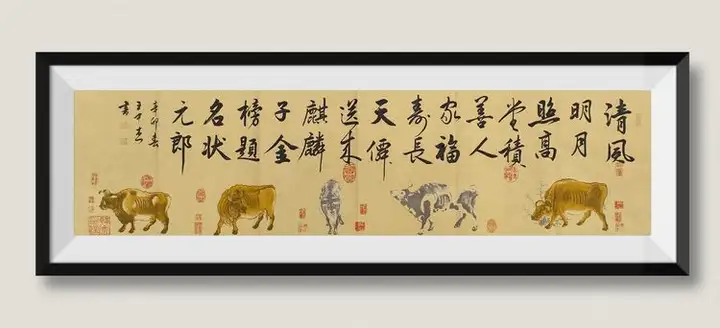 清風
明月
照高
堂積
善人
家福
壽長
天僊
送來
麒麟
子金
榜題
名狀
元郎
辛卯春
書